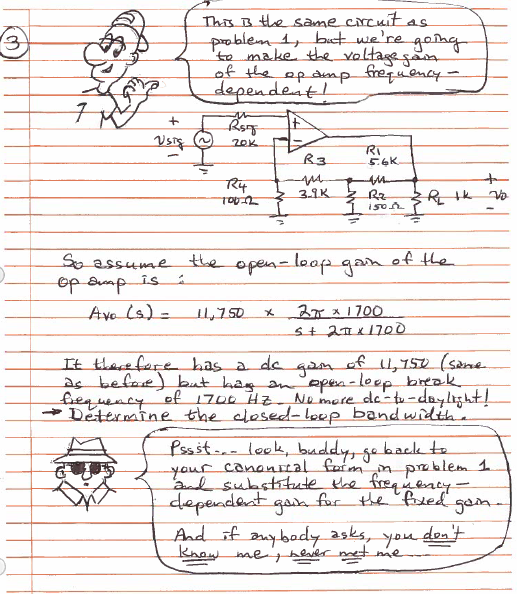 3
This is the same circuit as
problem 1, but we're going
to make the voltage gain
of the op amp frequency-
dependent!
+
Vsig
-
Rsig
20K
+
-
R3
3.9K
R1
5.6K
R4
100Ω
R2
150Ω
RL 1K
+
Vo
-
So assume the open-loop gain of the
op amp is :
Avo (s) = 11,750 x 2π x 1700
s + 2π x 1700
It therefore has a dc gain of 11,750 (same
as before) but has an open-loop break
frequency of 1700 Hz. No more dc-to-daylight!
→ Determine the closed-loop bandwidth.
Pssst... look, buddy, go back to
your canonical form in problem 1
and substitute the frequency-
dependent gain for the fixed gain.
And if anybody asks, you don't
know me, never met me